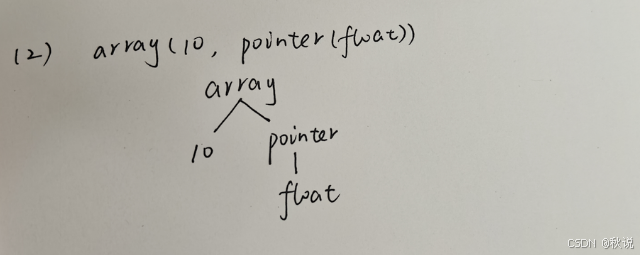 (2) array(10, pointer(float))
array
10 pointer
float
CSDN @秋说